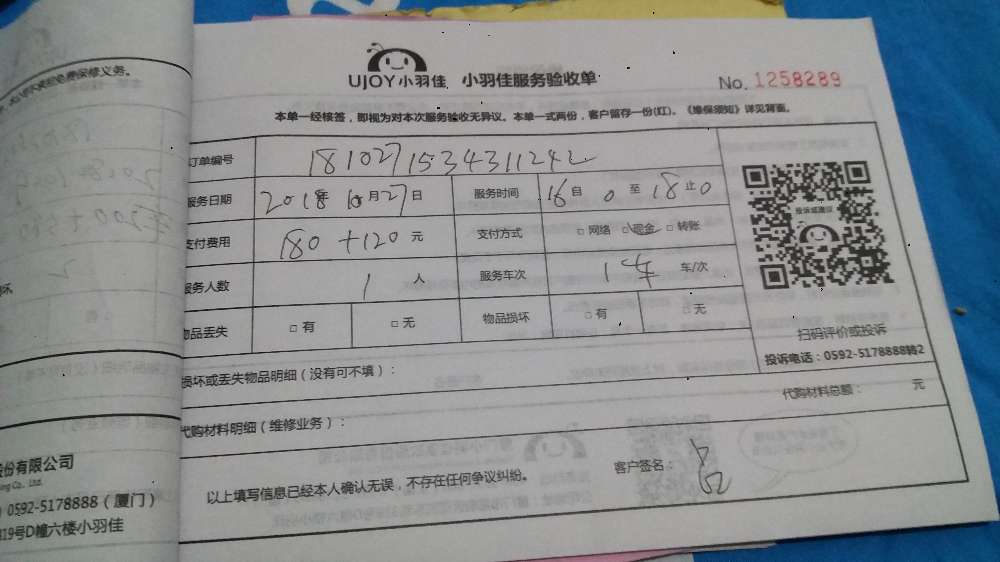 免费保修义务。
UJOY小羽佳 小羽佳服务验收单
No. 1258289
本单一经核签，即视为对本次服务验收无异议。本单一式两份，客户留存一份(红)。《维保须知》详见背面。
订单编号 1810271534311242
服务日期 2018年10月27日 服务时间 16自0至18止0
支付费用 180+120元 支付方式 □网络 □现金 □转账
服务人数 1人 服务车次 1车 车/次
物品丢失 □有 □无 物品损坏 □有 □无
投诉或建议
扫码评价或投诉
投诉电话：0592-5178888转2
损坏或丢失物品明细（没有可不填）：
代购材料总额： 元
代购材料明细（维修业务）：
以上填写信息已经本人确认无误，不存在任何争议纠纷。
客户签名：
股份有限公司
Co., Ltd.
0592-5178888（厦门）
819号D幢六楼小羽佳